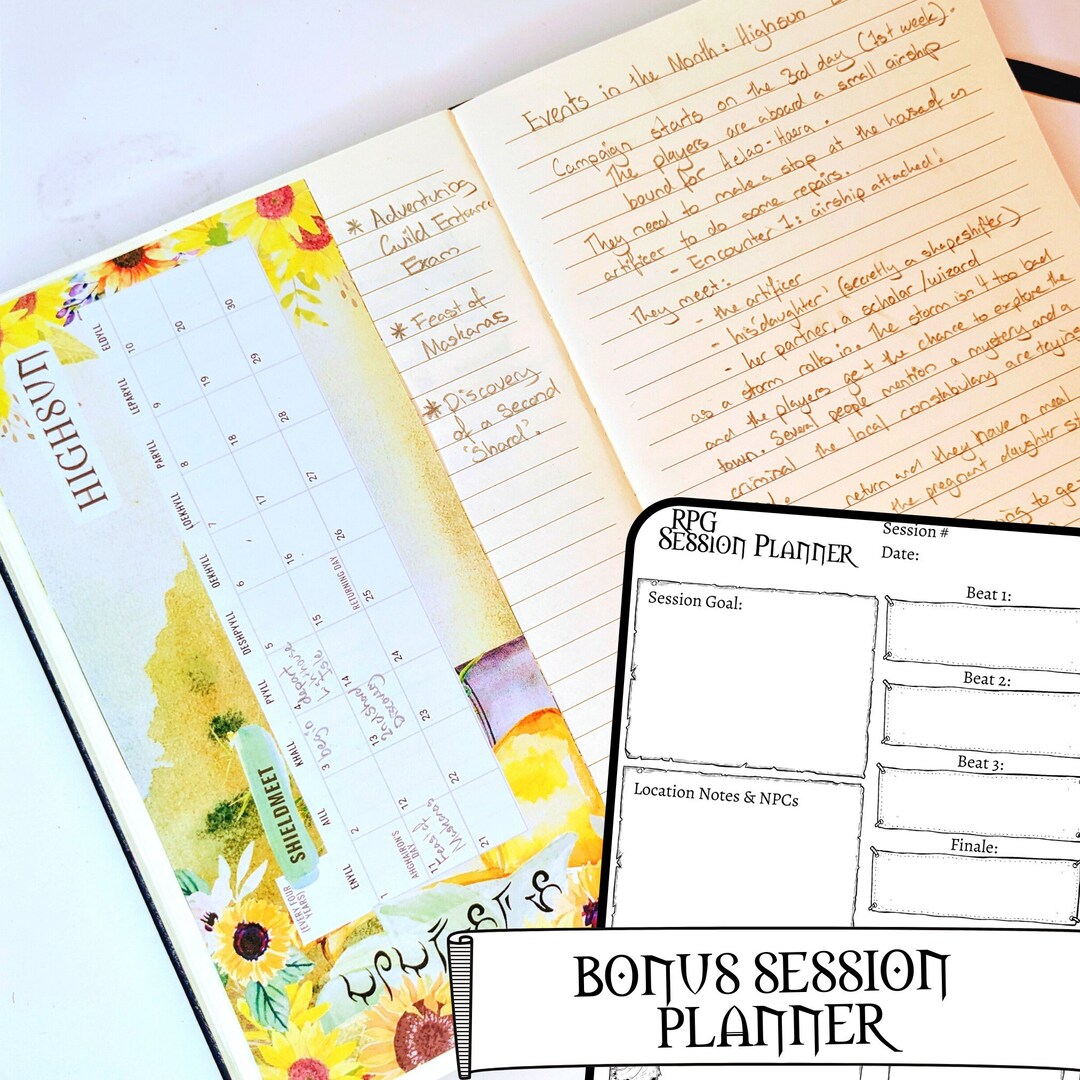 HIGHSUN
SHIELDMEET
(EVERY FOUR
YEARS)
ENYLL AILL KHALL PYYLL DESHPYLL OEKHYLL LOEKHYLL PARYLL LEPARYLL ELDYLL
1 2 3 4 5 6 7 8 9 10
begin depart
Isle
AHGHAIRON'S
DAY
11 12 13 14 15 16 17 18 19 20
Feast of
Maskaras
2nd Shard
Discovery
RETURNING DAY
21 22 23 24 25 26 27 28 29 30
* Adventuring
Guild Entrance
Exam
* Feast of
Maskaras
* Discovery
of a second
'Shard'.
Events in the Month: Highsun
Campaign starts on the 3rd day (1st week).
The players are aboard a small airship
bound for Aelao-Haera.
They need to make a stop at the house of an
artificer to do some repairs.
- Encounter 1: airship attacked!
They meet:
- the artificer
- his 'daughter' (secretly a shapeshifter)
- her partner, a scholar/wizard
as a storm rolls in. The storm isn't too bad
and the players get the chance to explore the
town. Several people mention a mystery and a
criminal the local constabulary are trying
return and they have a meal
the pregnant daughter
to get
RPG
SESSION PLANNER
Session #
Date:
Session Goal:
Beat 1:
Beat 2:
Beat 3:
Location Notes & NPCs
Finale:
BONUS SESSION
PLANNER